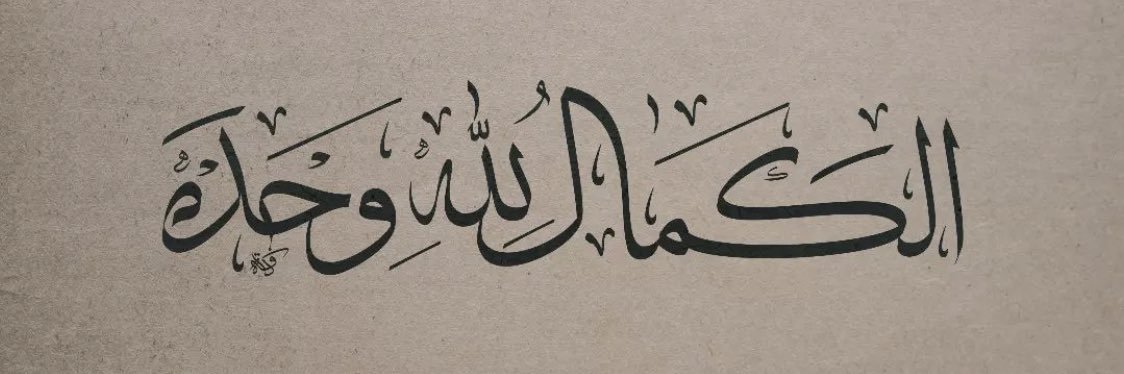 الكمال لله وحده